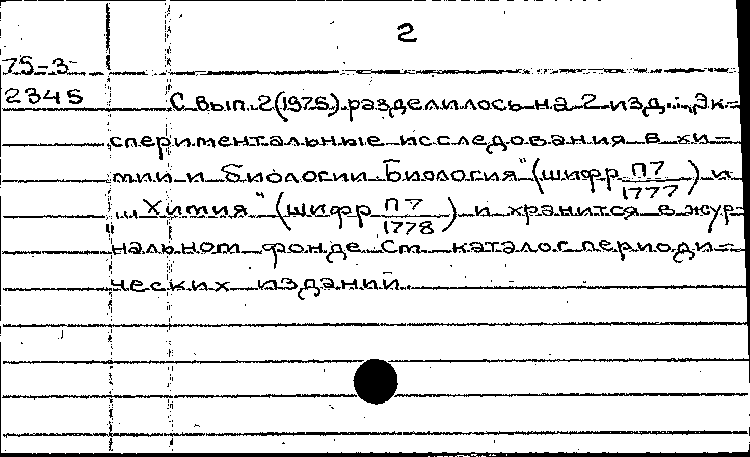 2
75-3
2345 С вып. 2(1975) разделилось на 2 изд.: „Эк=
спериментальные исследования в хи=
мии и биологии. Биология" (шифр П7/1777) и
„... Химия" (шифр П7/1778) и хранится в жур=
нальном фонде См каталог периоди=
ческих изданий.